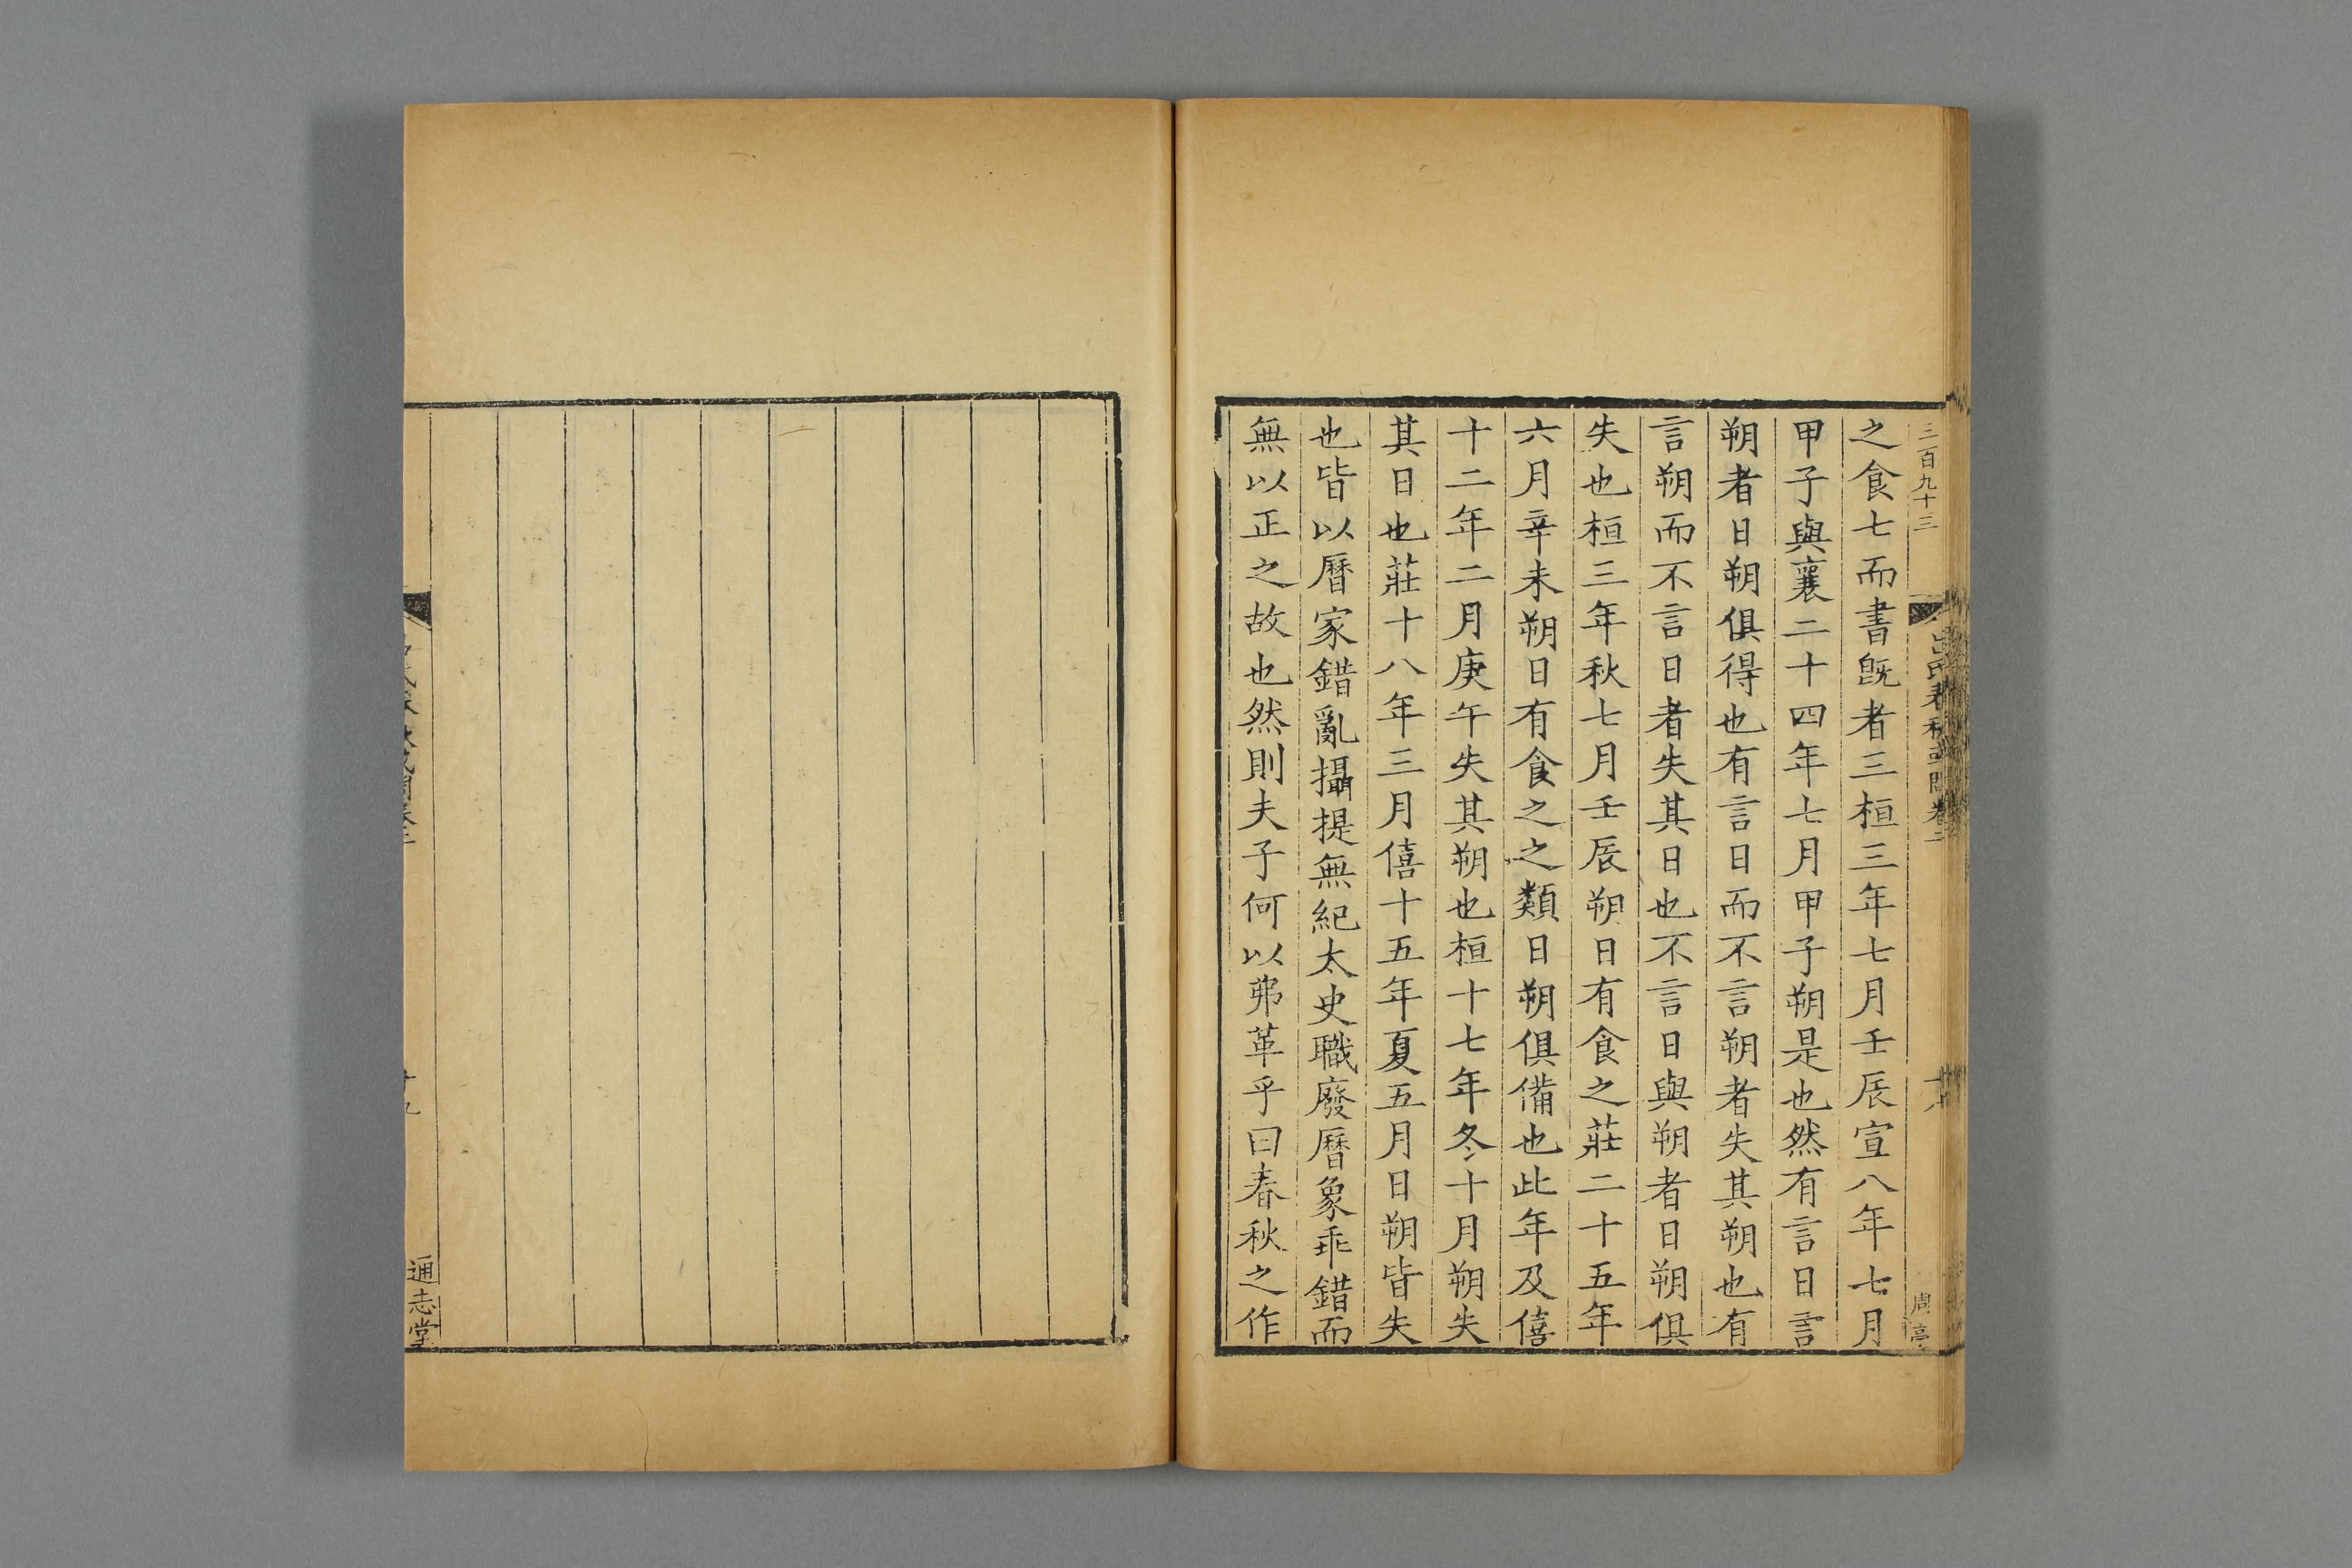 三百九十三
呂氏春秋或問卷二
十八
周亭
之食七而書旣者三桓三年七月壬辰宣八年七月
甲子與襄二十四年七月甲子朔是也然有言日言
朔者日朔俱得也有言日而不言朔者失其朔也有
言朔而不言日者失其日也不言日與朔者日朔俱
失也桓三年秋七月壬辰朔日有食之莊二十五年
六月辛未朔日有食之之類日朔俱備也此年及僖
十二年二月庚午失其朔也桓十七年冬十月朔失
其日也莊十八年三月僖十五年夏五月日朔皆失
也皆以曆家錯亂攝提無紀太史職廢曆象乖錯而
無以正之故也然則夫子何以弗革乎曰春秋之作
十九
通志堂